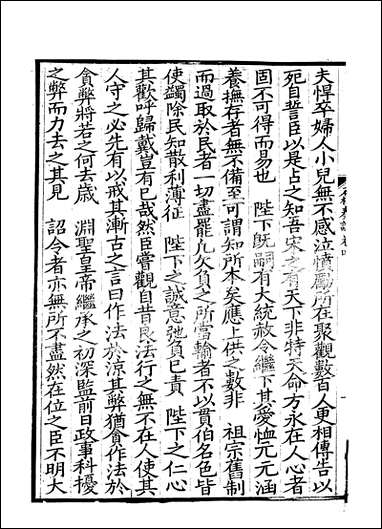 夫悍卒婦人小兒無不感泣憤勵所在聚觀數百人更相傳告以
死自誓臣以是占之知吾宋之有天下非特天命方永在人心者
固不可得而易也 陛下既嗣有大統赦令繼下其愛恤元元涵
養撫存者無不備至可謂知所本矣應上供之數非 祖宗舊制
而過取於民者一切盡罷凡欠負之所當輸者不以貫伯名色皆
使蠲除民知散利薄征 陛下之誠意弛負已責 陛下之仁心
其歡呼歸戴豈有已哉然臣嘗觀自昔良法行之無不在人使其
人守之必先有以戒其漸古之言曰作法於涼其弊猶貪作法於
貪弊將若之何去歲 淵聖皇帝繼承之初深監前日政事科擾
之弊而力去之其見 詔令者亦無所不盡然在位之臣不明大